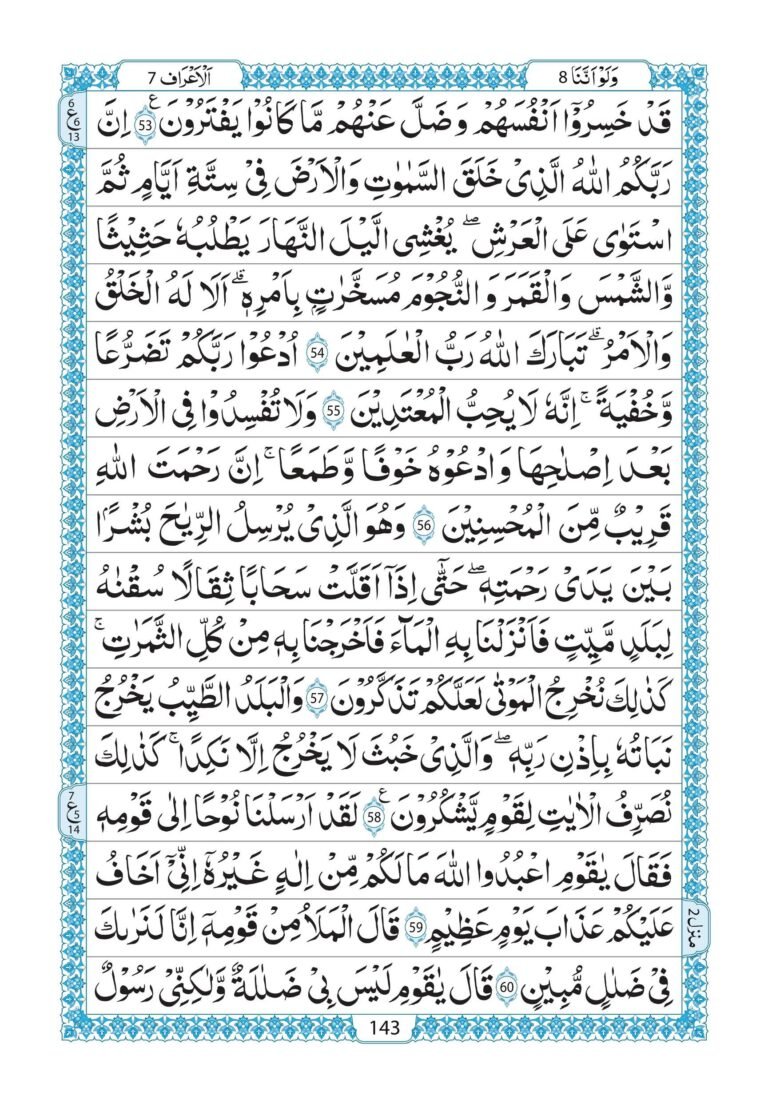 وَلَوْ اَنَّنَا 8
اَلْاَعْرَاف 7
قَدْ خَسِرُوْۤا اَنْفُسَهُمْ وَضَلَّ عَنْهُمْ مَّا كَانُوْا يَفْتَرُوْنَ ع 53 اِنَّ
6 ع 6 13
رَبَّكُمُ اللّٰهُ الَّذِیْ خَلَقَ السَّمٰوٰتِ وَالْاَرْضَ فِیْ سِتَّةِ اَیَّامٍ ثُمَّ
اسْتَوٰی عَلَی الْعَرْشِ ۖ یُغْشِی الَّیْلَ النَّهَارَ یَطْلُبُهٗ حَثِیْثًا
وَّالشَّمْسَ وَالْقَمَرَ وَالنُّجُوْمَ مُسَخَّرٰتٍۭ بِاَمْرِهٖ ۗ اَلَا لَهُ الْخَلْقُ
وَالْاَمْرُ ۗ تَبَارَكَ اللّٰهُ رَبُّ الْعٰلَمِیْنَ 54 اُدْعُوْا رَبَّكُمْ تَضَرُّعًا
وَّخُفْیَةً ۚ اِنَّهٗ لَا یُحِبُّ الْمُعْتَدِیْنَ 55 وَلَا تُفْسِدُوْا فِی الْاَرْضِ
بَعْدَ اِصْلَاحِهَا وَادْعُوْهُ خَوْفًا وَّطَمَعًا ۚ اِنَّ رَحْمَتَ اللّٰهِ
قَرِیْبٌ مِّنَ الْمُحْسِنِیْنَ 56 وَهُوَ الَّذِیْ یُرْسِلُ الرِّیٰحَ بُشْرًۢا
بَیْنَ یَدَیْ رَحْمَتِهٖ ۖ حَتّٰۤی اِذَاۤ اَقَلَّتْ سَحَابًا ثِقَالًا سُقْنٰهُ
لِبَلَدٍ مَّیِّتٍ فَاَنْزَلْنَا بِهِ الْمَآءَ فَاَخْرَجْنَا بِهٖ مِنْ كُلِّ الثَّمَرٰتِ ۚ
كَذٰلِكَ نُخْرِجُ الْمَوْتٰی لَعَلَّكُمْ تَذَكَّرُوْنَ 57 وَالْبَلَدُ الطَّیِّبُ یَخْرُجُ
نَبَاتُهٗ بِاِذْنِ رَبِّهٖ ۖ وَالَّذِیْ خَبُثَ لَا یَخْرُجُ اِلَّا نَكِدًا ۚ كَذٰلِكَ
نُصَرِّفُ الْاٰیٰتِ لِقَوْمٍ یَّشْكُرُوْنَ ع 58 لَقَدْ اَرْسَلْنَا نُوْحًا اِلٰی قَوْمِهٖ
7 ع 5 14
فَقَالَ یٰقَوْمِ اعْبُدُوا اللّٰهَ مَا لَكُمْ مِّنْ اِلٰهٍ غَیْرُهٗ اِنِّیْۤ اَخَافُ
عَلَیْكُمْ عَذَابَ یَوْمٍ عَظِیْمٍ 59 قَالَ الْمَلَاُ مِنْ قَوْمِهٖۤ اِنَّا لَنَرٰىكَ
منزل 2
فِیْ ضَلٰلٍ مُّبِیْنٍ 60 قَالَ یٰقَوْمِ لَیْسَ بِیْ ضَلٰلَةٌ وَّلٰكِنِّیْ رَسُوْلٌ
143